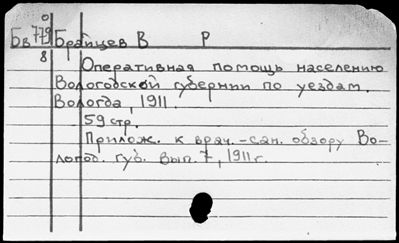 0
Бв 779 Брайцев В Р
8
Оперативная помощь населению
Вологодской губернии по уездам.
Вологда, 1911.
59 стр.
Прилож. к врач.-сан. обзору Во-
логод. губ. Вып. 7, 1911 г.